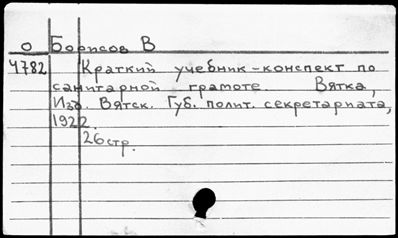 О Борисов В
4782 Краткий учебник-конспект по
санитарной грамоте. Вятка,
Изд. Вятск. Губ. полит. секретариата,
1922.
26стр.